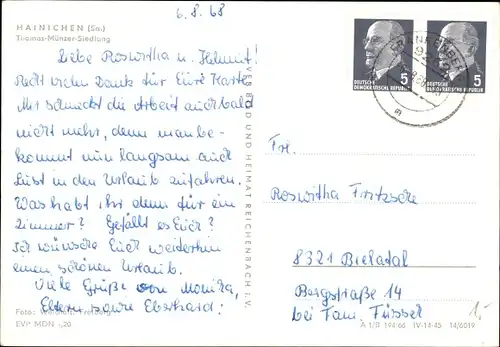 6.8.68
HAINICHEN (Sa.)
Thomas-Müntzer-Siedlung
Liebe Roswitha u. Helmut!
Recht vielen Dank für Eure Karte.
Mir schmeckt die Arbeit auch bald
nicht mehr, denn man be-
kommt nun langsam auch
Lust in den Urlaub zufahren.
Was habt ihr denn für ein
Zimmer? Gefällt es Euch?
Ich wünsche Euch weiterhin
einen schönen Urlaub.
Viele Grüße von Monika,
Eltern sowie Eberhard!
Foto:
EVP MDN -,20
VEB BILD UND HEIMAT REICHENBACH I. V.
5
DEUTSCHE
DEMOKRATISCHE REPUBLIK
5
DEUTSCHE
DEMOKRATISCHE REPUBLIK
Frl.
Roswitha Fritzsche
8321 Bielatal
Bergstraße 14
bei Fam. Füssel
A 1/B 194/66 IV-14-45 14/6019
1,-